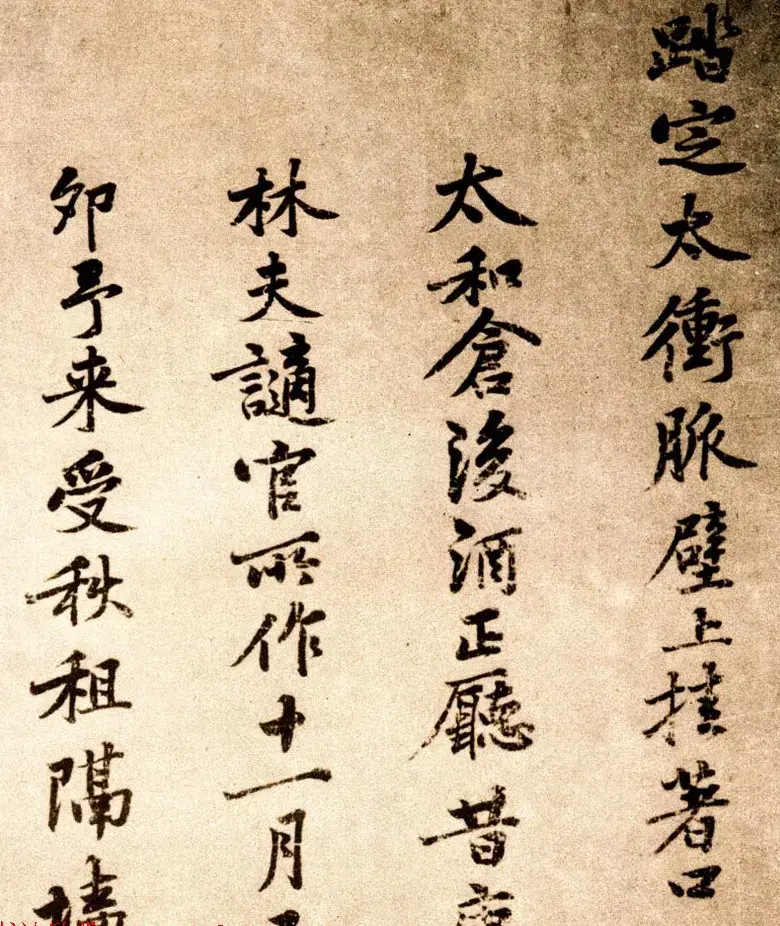 踏定太衝脈壁上挂著口
太和倉浚酒正廳昔
林夫謫官所作十一月
夘予来受秋租隔